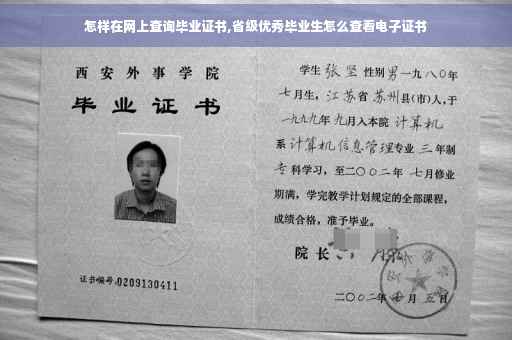 怎样在网上查询毕业证书,省级优秀毕业生怎么查看电子证书
西安外事学院
毕业证书
证书编号:0209130411
学生 张坚 性别 男 一九八〇年
七月生, 江苏省 苏州县(市)人,于
一九九九年 九月入本院 计算机
系 计算机信息管理专业 三 年制
专 科学习, 至二〇〇二年 七月修业
期满, 学完教学计划规定的全部课程,
成绩合格, 准予毕业。
院长
二〇〇二年 月 五日